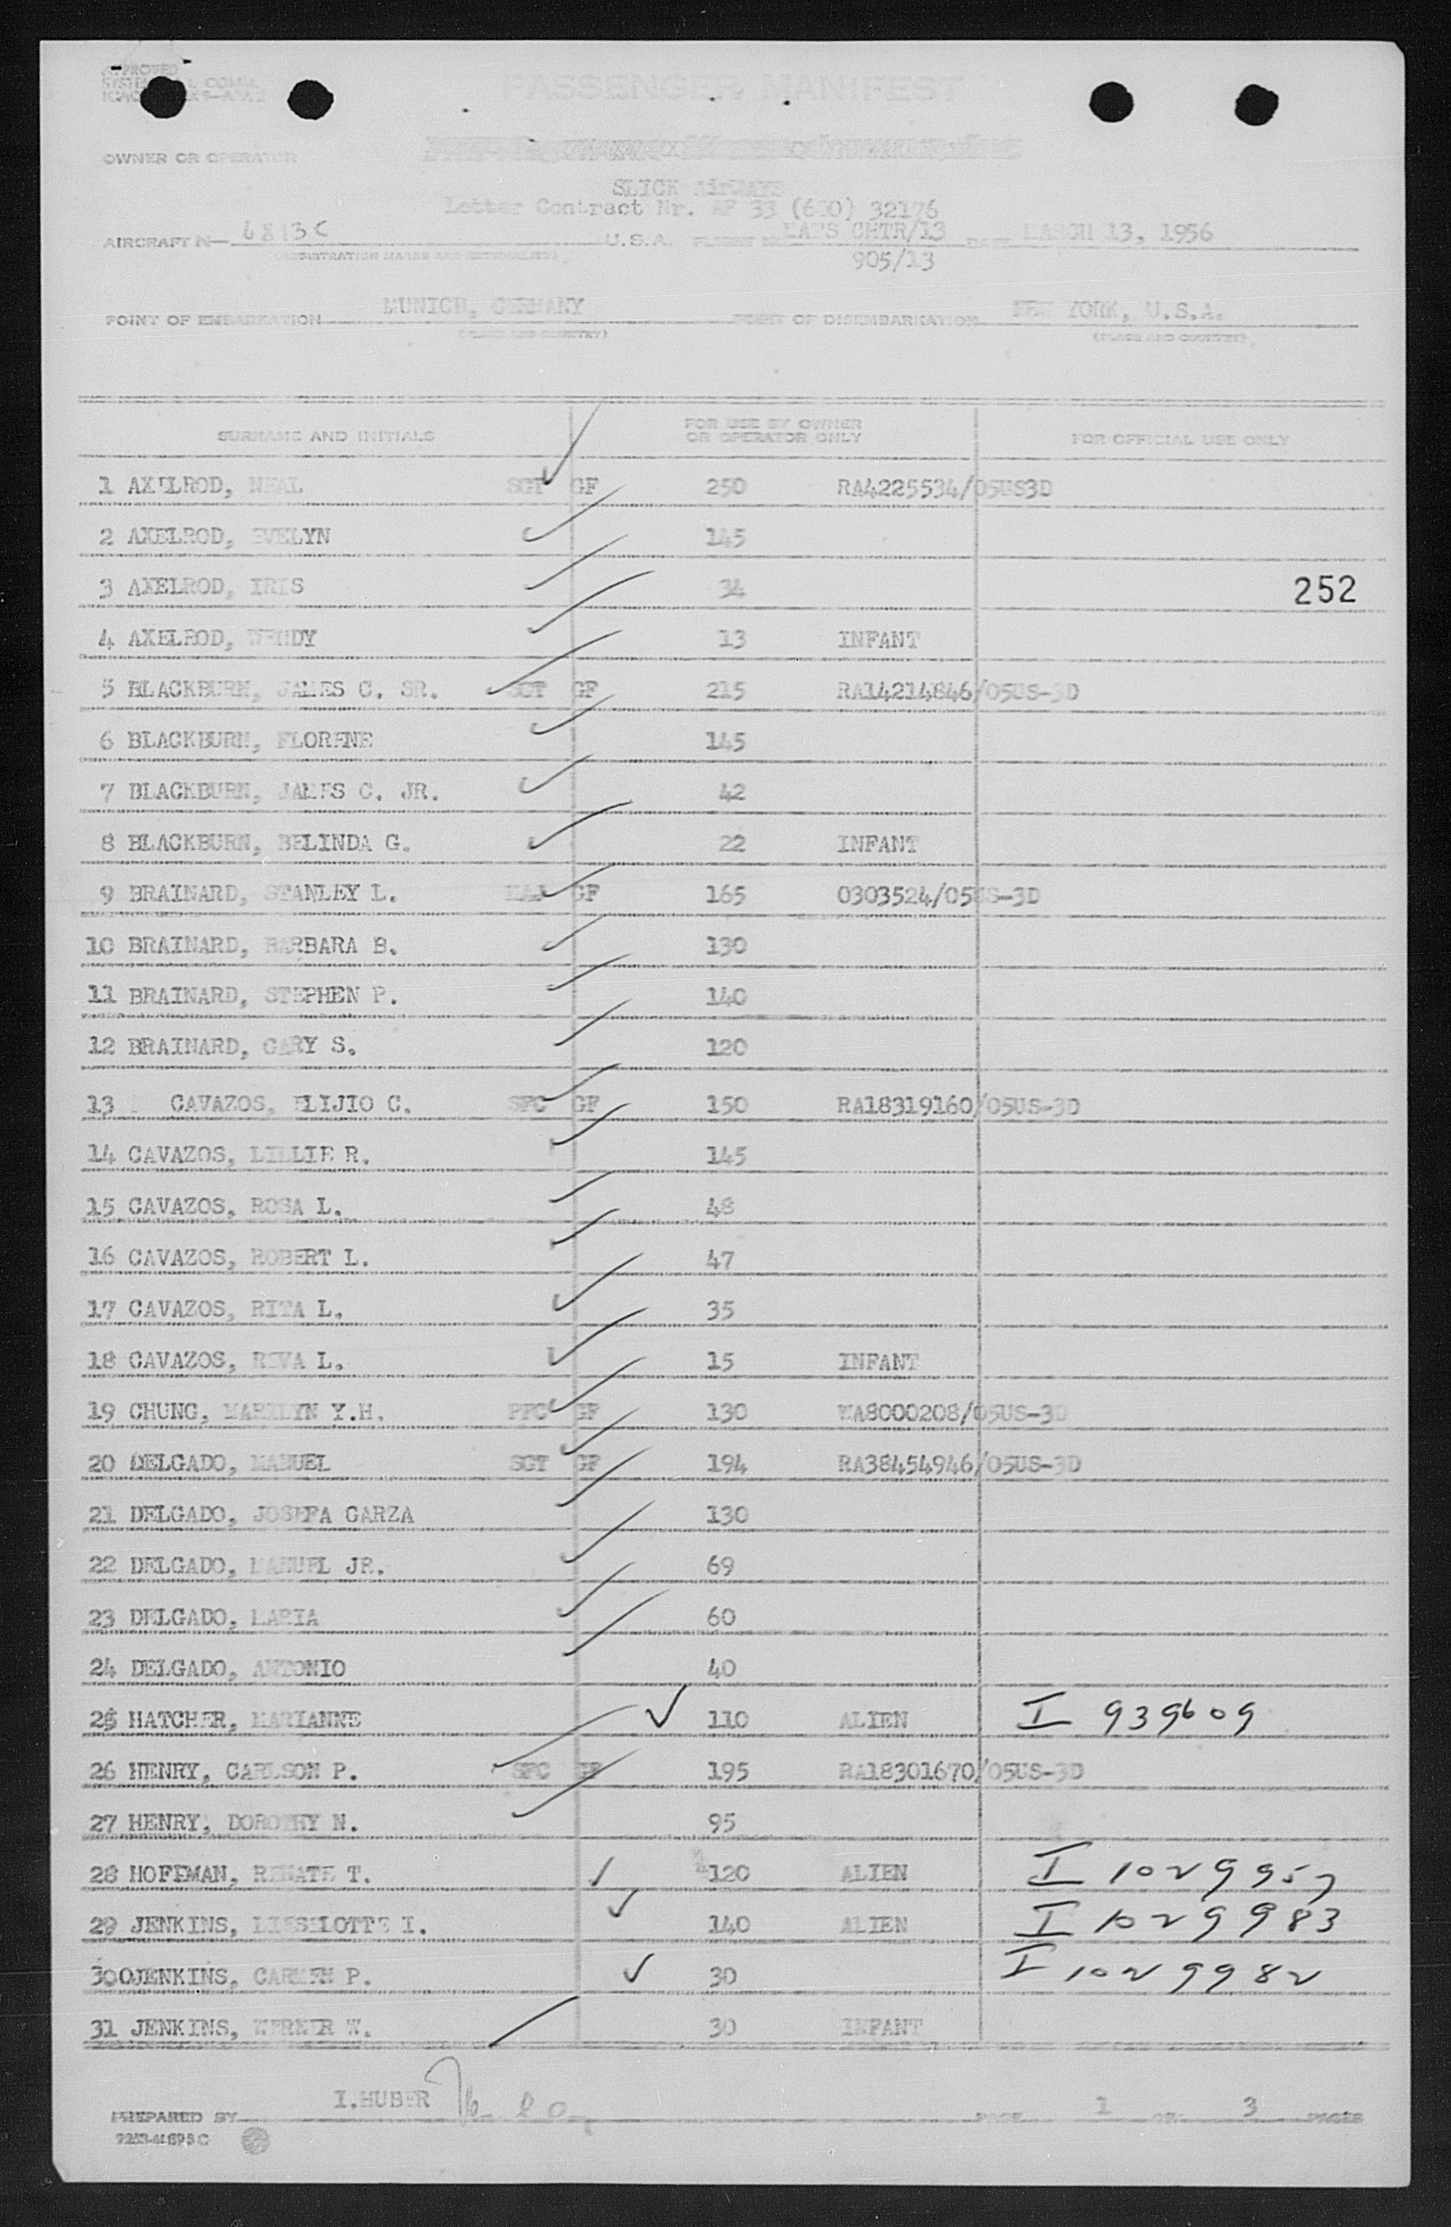 APPROVED
PASSENGER MANIFEST
OWNER OR OPERATOR
SLICK AIRWAYS
Letter Contract Nr. AF 33 (600) 32176
AIRCRAFT N— 6813C U.S.A. FLIGHT No. MATS CHTR/13 DATE MARCH 13, 1956
(REGISTRATION MARKS AND NATIONALITY) 905/13
POINT OF EMBARKATION MUNICH, GERMANY POINT OF DISEMBARKATION NEW YORK, U.S.A.
(PLACE AND COUNTRY) (PLACE AND COUNTRY)
SURNAME AND INITIALS FOR USE BY OWNER OR OPERATOR ONLY FOR OFFICIAL USE ONLY
1 AXELROD, NEAL SGT GF 250 RA4225534/05US3D
2 AXELROD, EVELYN 145
3 AXELROD, IRIS 34 252
4 AXELROD, WENDY 13 INFANT
5 BLACKBURN, JAMES C. SR. SGT GF 215 RA14214846/05US-3D
6 BLACKBURN, FLORENE 145
7 BLACKBURN, JAMES C. JR. 42
8 BLACKBURN, BELINDA G. 22 INFANT
9 BRAINARD, STANLEY L. MAJ GF 165 0303524/05US-3D
10 BRAINARD, BARBARA B. 130
11 BRAINARD, STEPHEN P. 140
12 BRAINARD, GARY S. 120
13 CAVAZOS, ELIJIO C. SFC GF 150 RA18319160/05US-3D
14 CAVAZOS, LILLIE R. 145
15 CAVAZOS, ROSA L. 48
16 CAVAZOS, ROBERT L. 47
17 CAVAZOS, RITA L. 35
18 CAVAZOS, REVA L. 15 INFANT
19 CHUNG, MARILYN Y.H. PFC GF 130 WA8000208/05US-3D
20 DELGADO, MANUEL SGT GF 194 RA38454946/05US-3D
21 DELGADO, JOSEFA GARZA 130
22 DELGADO, MANUEL JR. 69
23 DELGADO, MARIA 60
24 DELGADO, ANTONIO 40
25 HATCHER, MARIANNE 110 ALIEN I 939609
26 HENRY, CARLSON P. SFC GF 195 RA18301670/05US-3D
27 HENRY, DOROTHY N. 95
28 HOFFMAN, RENATE T. 120 ALIEN I 1029957
29 JENKINS, LIESELOTTE I. 140 ALIEN I 1029983
30 JENKINS, CARMEN P. 30 I 1029982
31 JENKINS, WERNER W. 30 INFANT
PREPARED BY I.HUBER PAGE 1 OF 3 PAGES